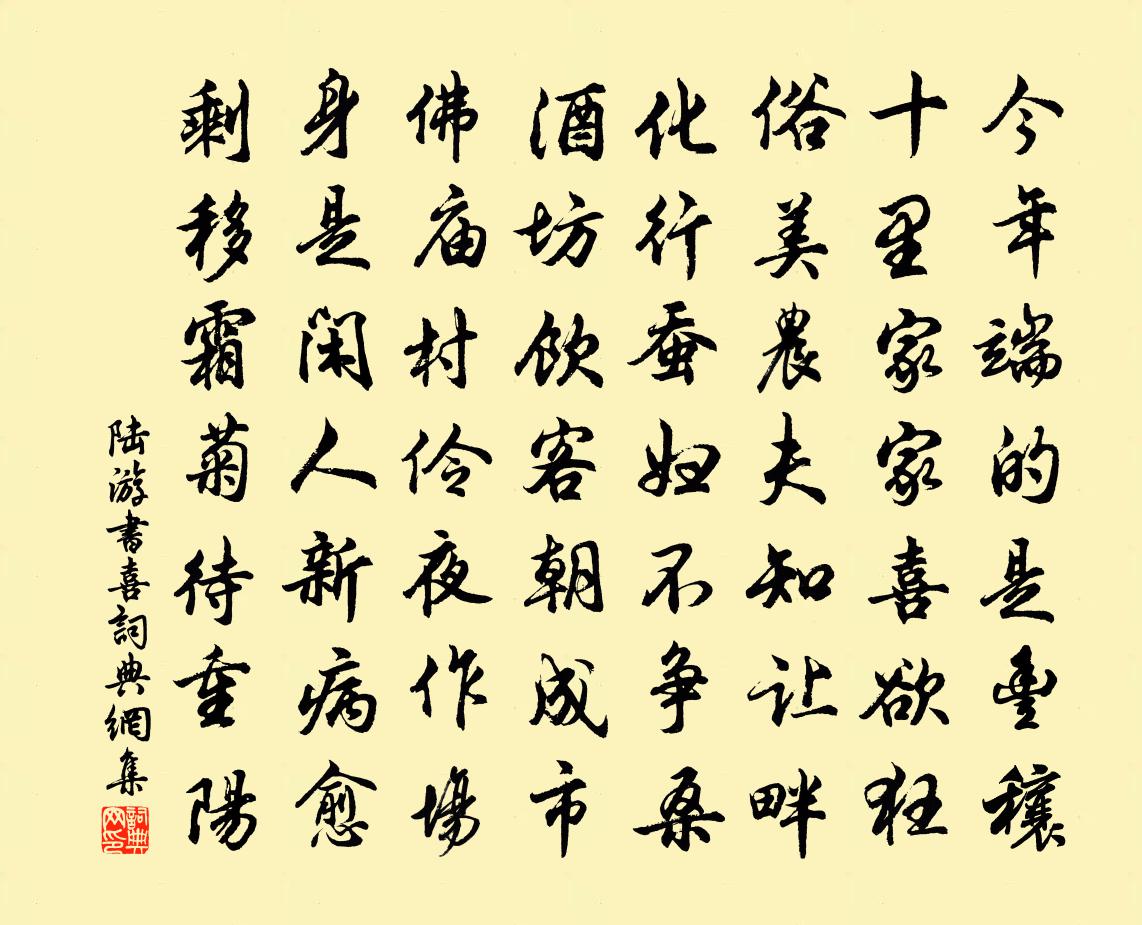 今年端的是豊穰
十里家家喜欲狂
俗美農夫知让畔
化行蚕妇不争桑
酒坊飲客朝成市
佛庙村伶夜作場
身是闲人新病愈
剩移霜菊待重陽
陆游書喜詞典網集
詞典网印